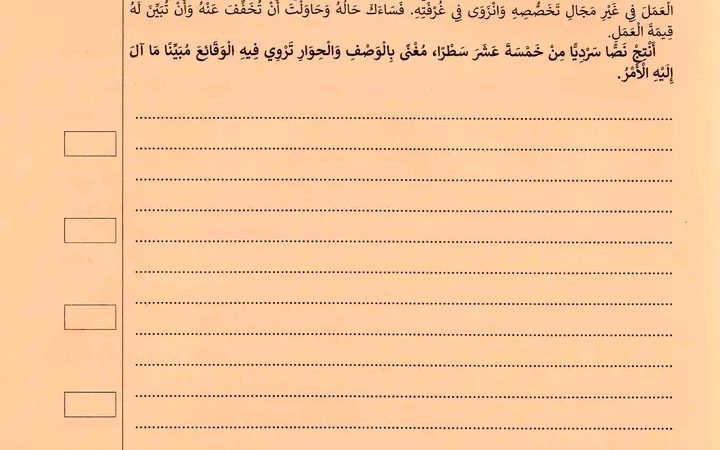 الْعَمَلَ فِي غَيْرِ مَجَالِ تَخَصُّصِهِ وَانْزَوَى فِي غُرْفَتِهِ. فَسَاءَكَ حَالُهُ وَحَاوَلْتَ أَنْ تُخَفِّفَ عَنْهُ وَأَنْ تُبَيِّنَ لَهُ
قِيمَةَ الْعَمَلِ.
أَنْتِجْ نَصًّا سَرْدِيًّا مِنْ خَمْسَةَ عَشَرَ سَطْرًا، مُغْنًى بِالْوَصْفِ وَالْحِوَارِ تَرْوِي فِيهِ الْوَقَائِعَ مُبَيِّنًا مَا آلَ
إِلَيْهِ الْأَمْرُ.